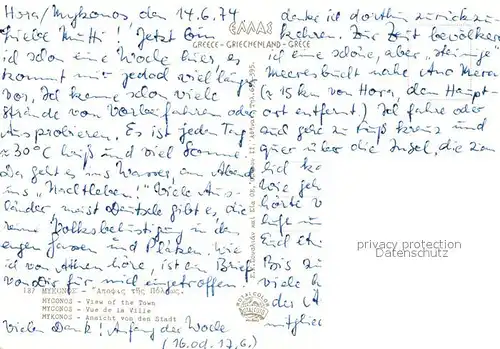 Hora/Mykonos, den 14.6.74
Liebe Mutti! Jetzt bin
ich schon eine Woche hier, es
kommt mir jedoch viel länger
vor. Ich kenne schon viele
Strände von Vorbeifahren oder
Ausprobieren. Es ist jeden Tag
≈ 30°C heiß und viel Sonne.
Da geht es ins Wasser, am Abend
ins "Nachtleben!" Viele Aus-
länder, meist Deutsche gibt es, die
reine Volksbelustigung in den
engen Gassen und Plätzen. Wie
ich von Athen höre, ist ein Brief
von dir für mich eingetroffen.
Vielen Dank! Anfang der Woche
(16. od. 17.6.)
ΕΛΛΑΣ
GREECE - GRIECHENLAND - GRECE
danke ich dorthin zurückzu-
kehren. Zur Zeit bevölkere
ich eine schöne, aber "steinige"
Meeresbucht nahe Ano Mera
(≈ 15 km von Hora, dem Haupt-
ort entfernt.) Ich fahre oder
und gehe zu Fuß kreuz und
quer über die Insel, die
hörte
und
Bis zu
viele
mitglie
187 ΜΥΚΟΝΟΣ - Άποψις τῆς Πόλεως
MYCONOS - View of the Town
MYCONOS - Vue de la Ville
MYKONOS - Ansicht von den Stadt
privacy protection
Datenschutz